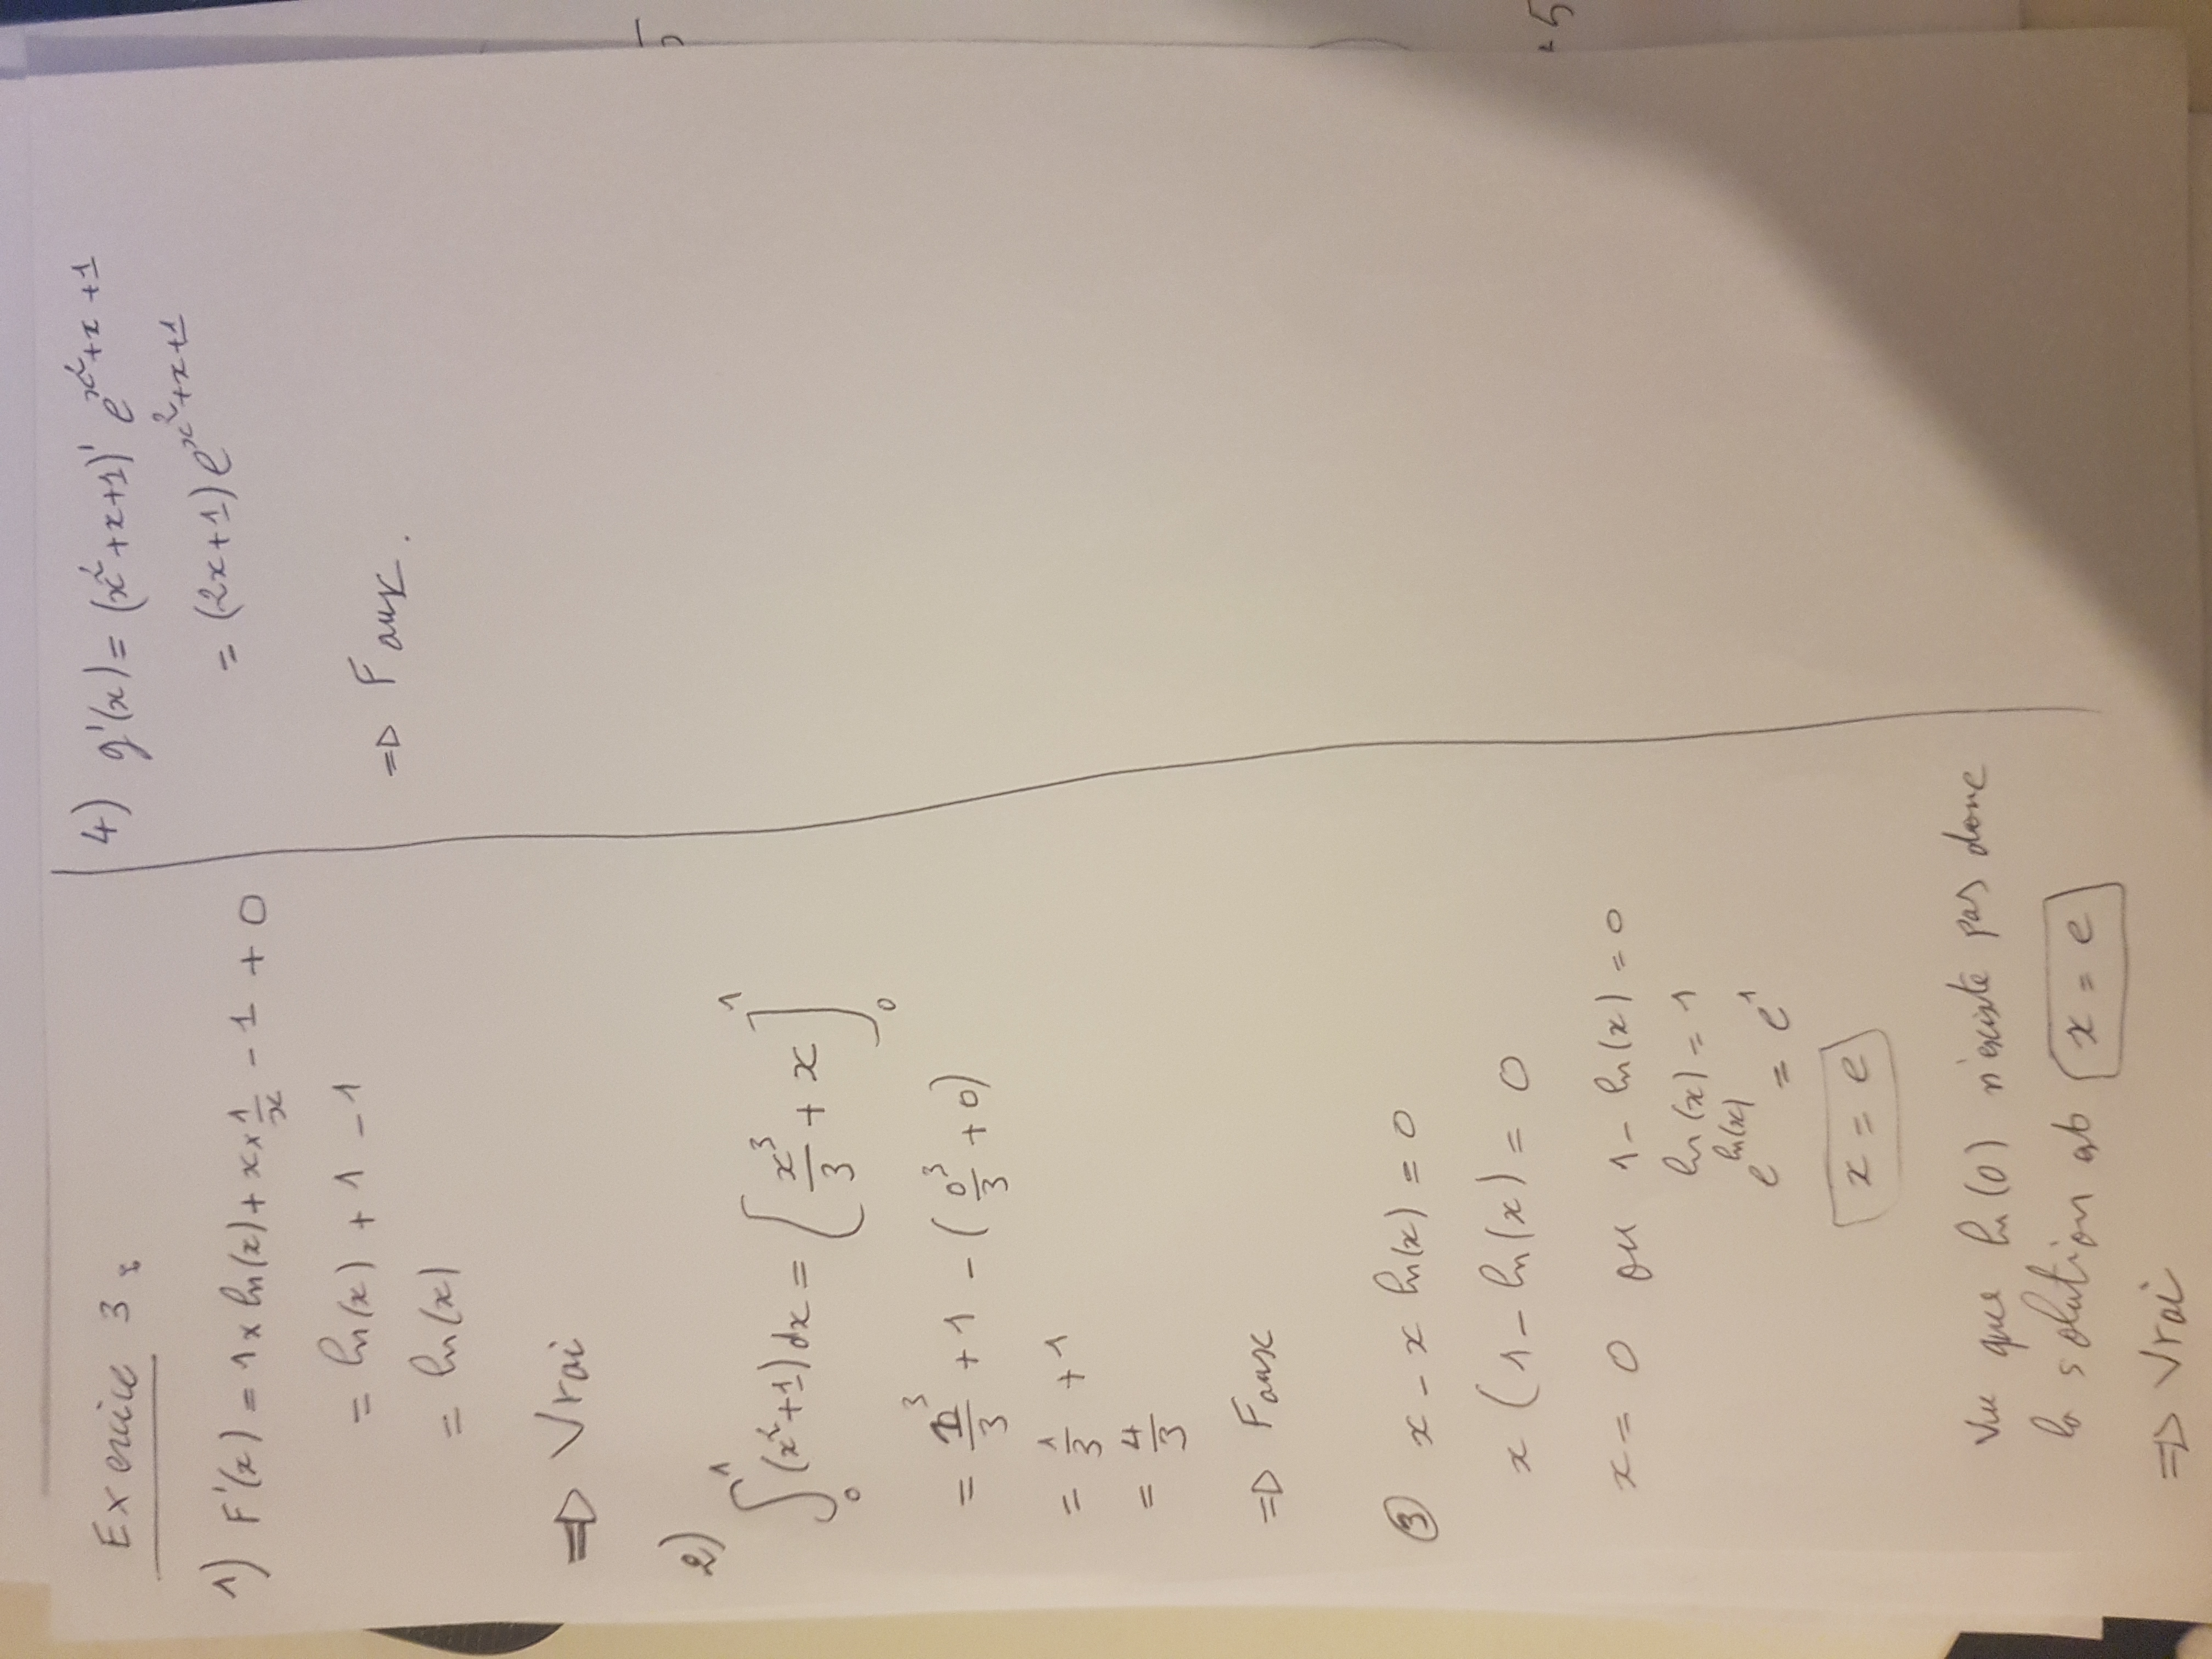 Exercice 3 :
1) F'(x) = 1 × ln(x) + x × 1/x - 1 + 0
= ln(x) + 1 - 1
= ln(x)
⇒ Vrai
2)
∫₀¹ (x²+1) dx = [x³/3 + x]₀¹
= 1³/3 + 1 - (0³/3 + 0)
= 1/3 + 1
= 4/3
⇒ Faux
③ x - x ln(x) = 0
x (1 - ln(x) = 0
x = 0 ou 1 - ln(x) = 0
ln(x) = 1
e^ln(x) = e¹
x = e
Vue que ln(0) n'existe pas donc
la solution est x = e
⇒ Vrai
4) g'(x) = (x²+x+1)' e^x²+x+1
= (2x+1) e^x²+x+1
⇒ Faux.
5
+5